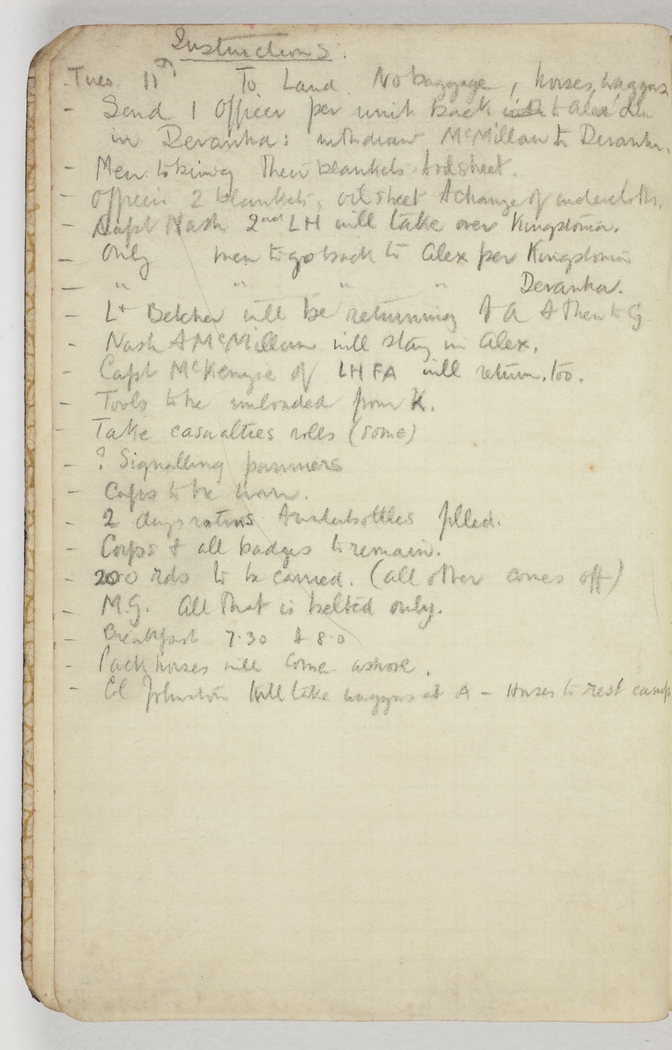 Instructions.
Tues. 11th To Land No baggage, horses, waggons
- Send 1 Officer per unit back to Alex
in Devanha: withdraw McMillan to Devanha.
- Men to bring their blankets & oilsheet.
- Officers 2 blankets, oilsheet & change of underclothes.
- Capt Nash 2nd LH will take over Kingstonian.
- Only men to go back to Alex per Kingstonian
- " " " " Devanha.
- Lt Belcher will be returning to A & then to G
- Nash & McMillan will stay in Alex.
- Capt McKenzie of LHFA will return, too.
- Tools to be unloaded from K.
- Take casualties rolls (some)
- ? Signalling panniers
- Caps to be worn.
- 2 days rations & waterbottles filled.
- Corps & all badges to remain.
- 200 rds to be carried. (all other comes off)
- M.G. All that is belted only.
- Breakfast 7.30 & 8.0
- Pack horses will come ashore.
- Cl Johnston will take waggons at A - Horses to rest camp